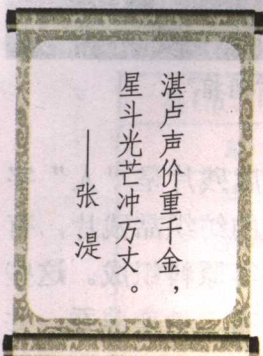 湛卢声价重千金，
星斗光芒冲万丈。
——张 湜